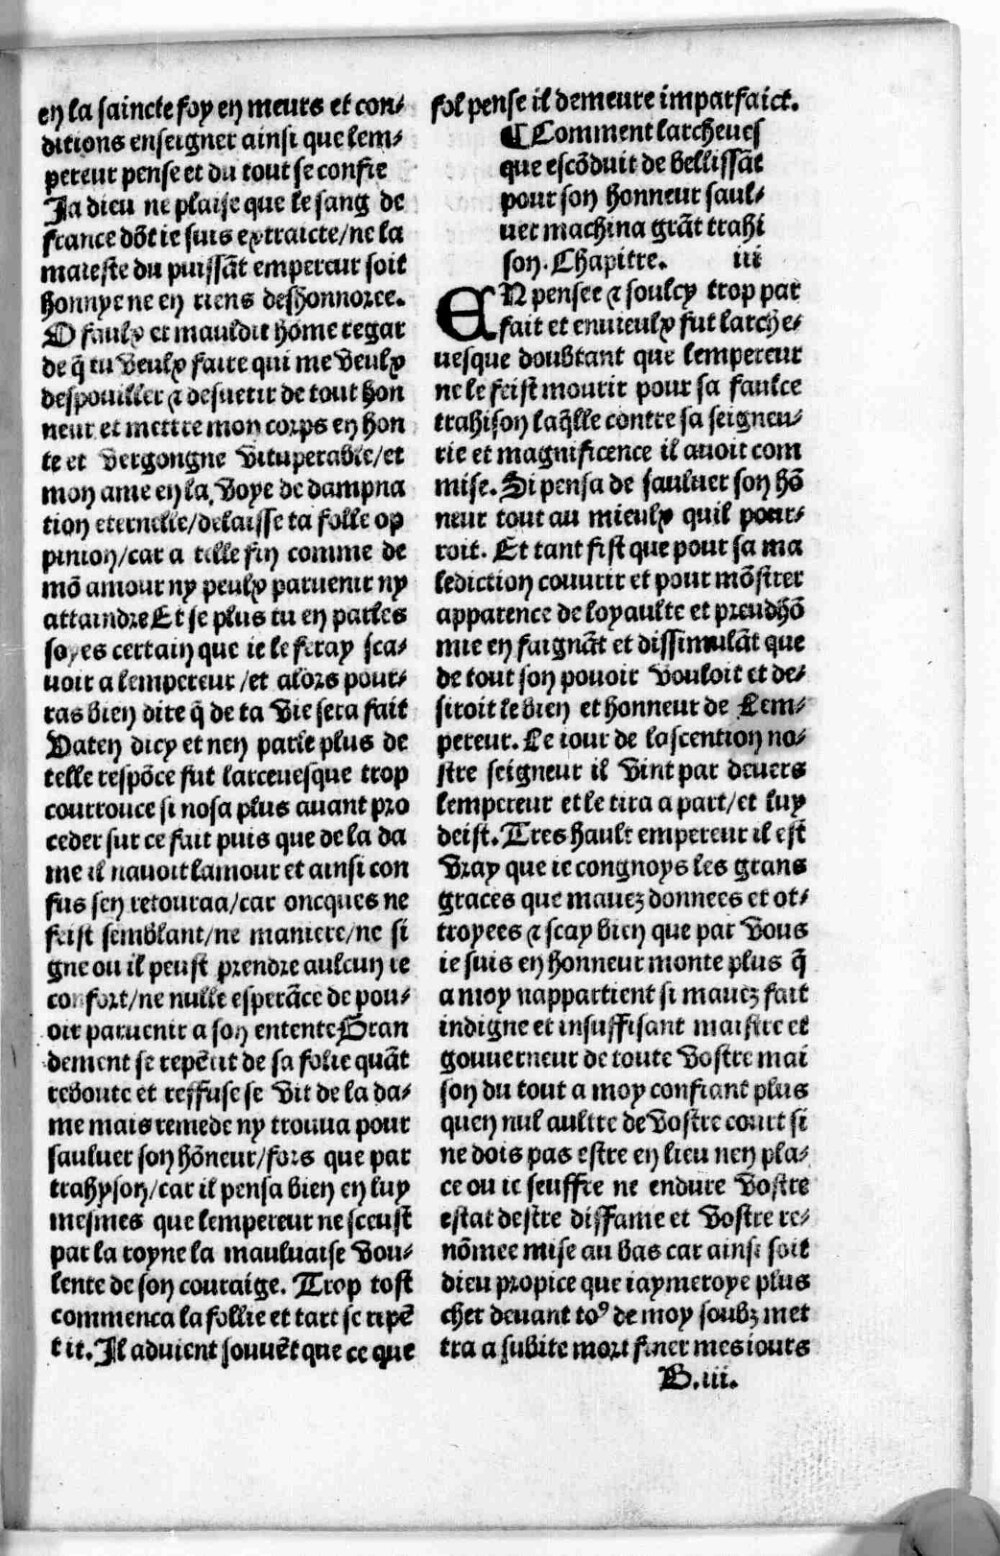 en la saincte foy en meurs et con-
ditions enseigner ainsi que lem-
pereur pense et du tout se confie
Ja dieu ne plaise que le sang de
france dõt ie suis extraicte/ne la
maieste du puissãt empereur soit
honnye ne en riens deshonnoree.
O faulx et mauldit hõme regar
de q̃ tu veulx faire qui me veulx
despouiller ⁊ desuetir de tout hon
neur et mettre mon corps en hon
te et vergongne vituperable/et
mon ame en la voye de dampna
tion eternelle/delaisse ta folle op
pinion/car a telle fin comme de
mõ amour ny peulx paruenir ny
attaindre Et se plus tu en parles
soyes certain que ie le feray sca-
uoir a lempereur/et alors pour-
ras bien dire q̃ de ta vie sera fait
Vaten dicy et nen parle plus de
telle respõce fut larceuesque trop
courrouce si nosa plus auant pro
ceder sur ce fait puis que de la da
me il nauoit lamour et ainsi con
fus sen retouraa/car oncques ne
feist semblant/ne maniere/ne si
gne ou il peust prendre aulcun re
confort/ne nulle esperãce de pou-
oir paruenir a son entente Gran
dement se repẽtit de sa folie quãt
reboute et reffuse se vit de la da-
me mais remede ny trouua pour
sauluer son hõneur/fors que par
trahyson/car il pensa bien en luy
mesmes que lempereur ne sceust
par la royne la mauluaise vou-
lente de son couraige. Trop tost
commenca la follie et tart se repẽ
tit. Il aduient souuẽt que ce que
fol pense il demeure imparfaict.
¶ Comment larcheues
que escõduit de bellissãt
pour son honneur saul-
uer machina grãt trahi
son. Chapitre. iii
EN pensee ⁊ soulcy trop par
fait et enuieulx fut larche-
uesque doubtant que lempereur
ne le feist mourir pour sa faulce
trahison laq̃lle contre sa seigneu-
rie et magnificence il auoit com
mise. Si pensa de sauluer son hõ
neur tout au mieulx quil pour-
roit. Et tant fist que pour sa ma
lediction couurir et pour mõstrer
apparence de loyaulte et preudhõ
mie en faignãt et dissimulãt que
de tout son pouoir vouloit et de-
siroit le bien et honneur de Lem-
pereur. Le iour de lascention no-
stre seigneur il vint par deuers
lempereur et le tira a part/et luy
deist. Tres hault empereur il est
vray que ie congnoys les grans
graces que mauez donnees et ot-
troyees ⁊ scay bien que par vous
ie suis en honneur monte plus q̃
a moy nappartient si mauez fait
indigne et insuffisant maistre et
gouuerneur de toute vostre mai
son du tout a moy confiant plus
quen nul aultre de vostre court si
ne dois pas estre en lieu nen pla-
ce ou ie seuffre ne endure vostre
estat destre diffame et vostre re-
nõmee mise au bas car ainsi soit
dieu propice que iaymeroye plus
cher deuant toꝰ de moy soubz met
tra a subite mort finer mes iours
B.iii.